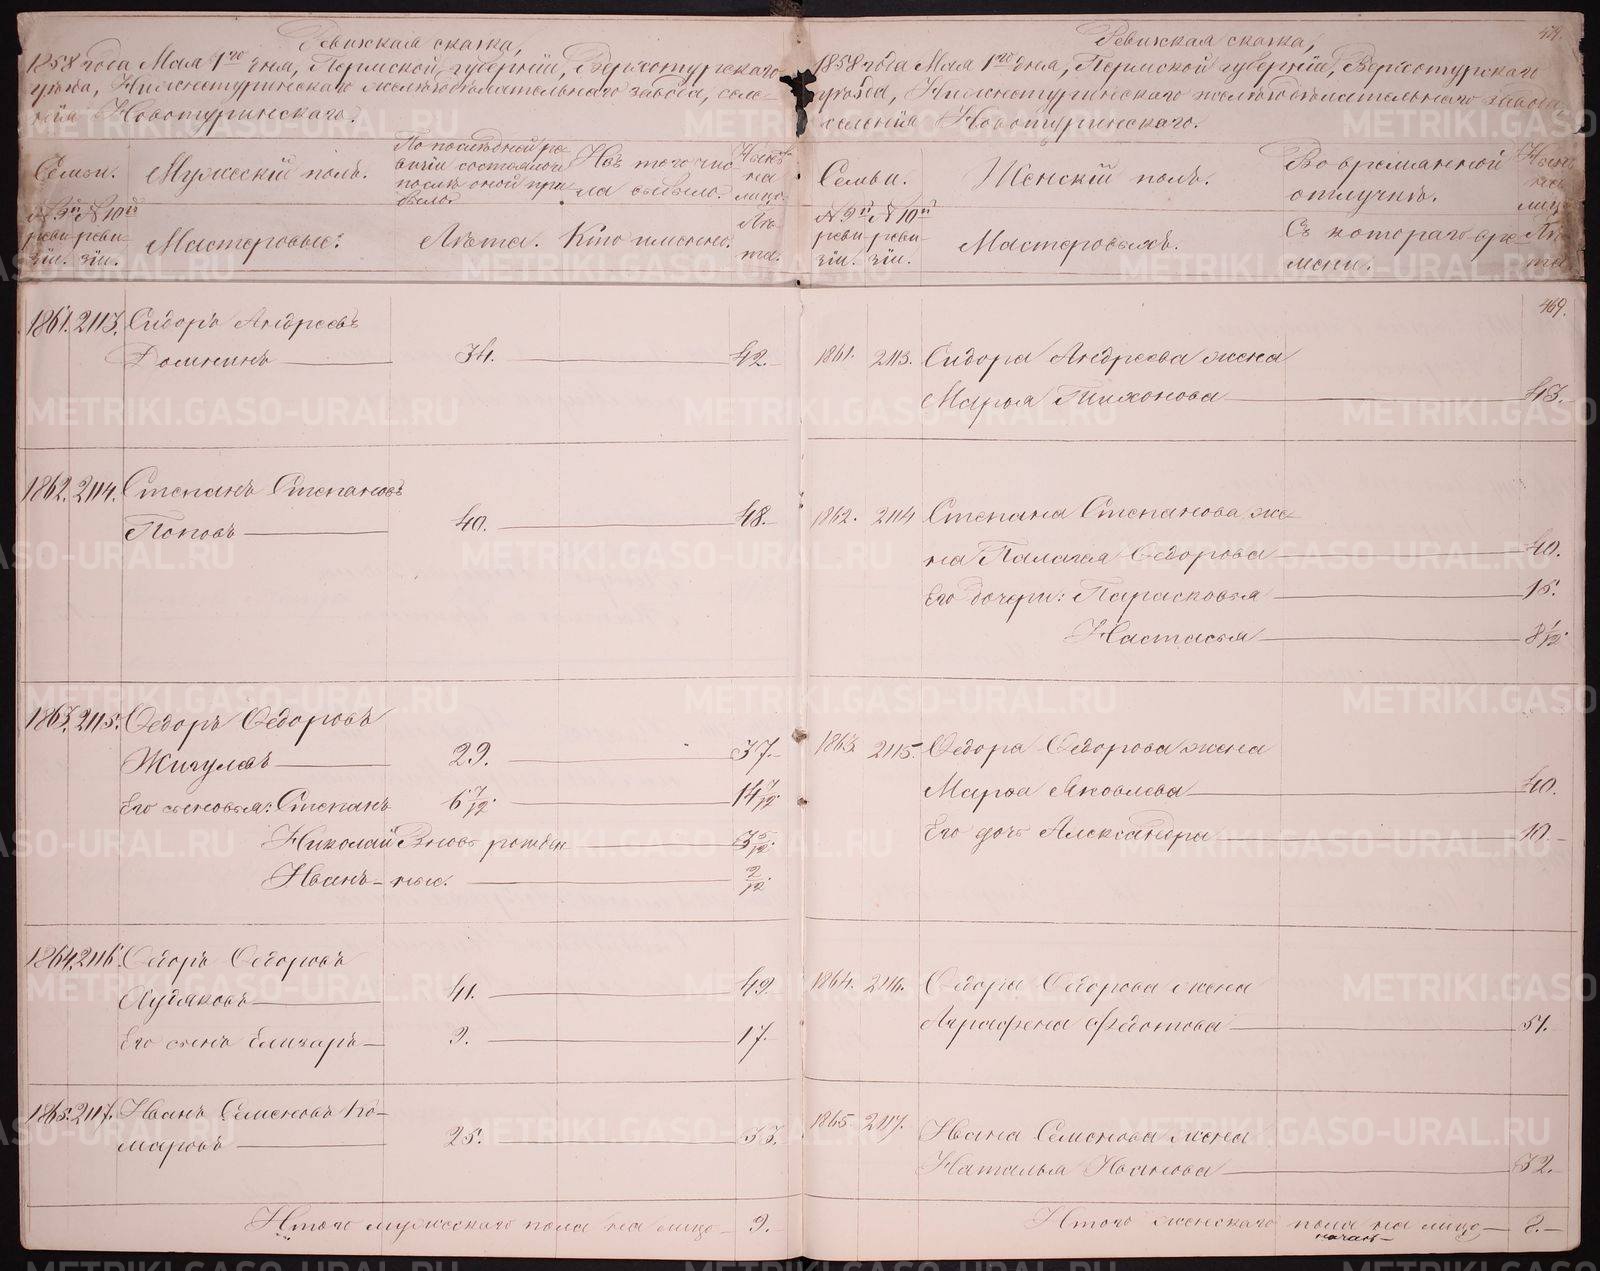 Ревижская сказка,
1858 года Мая 1го дня, Пермской губерніи, Верхотурскаго
уѣзда, Нижнетуринскаго желѣзодѣлательнаго завода, селе-
нія Новотуринскаго.
Семьи.
Мужескій полъ.
По послѣдней ре-
визіи состояло и
послѣ оной при-
было.
Изъ того чис
ла выбыло.
Нынѣ
на
лицо.
№ 9й № 10й
реви- реви-
зіи. зіи.
Мастеровые:
Лѣта.
Кто именно.
Лѣ-
та.
1861. 2113. Сидоръ Андреевъ
Домнинъ 34. 42.
1862. 2114. Степанъ Степановъ
Поповъ 40. 48.
1863. 2115. Ѳедоръ Ѳедоровъ
Жигулевъ 29. 37.
Его сыновья: Степанъ 6 7/12. 14 7/12.
Николай Вновь рожден 3 5/12.
Иванъ 2/12.
1864. 2116. Ѳедоръ Ѳедоровъ
Худяковъ 41. 49.
Его сынъ Елизаръ 9. 17.
1865. 2117. Иванъ Семеновъ Ко-
маровъ 25. 33.
Итого мужескаго пола на лицо 9.
Ревижская сказка,
1858 года Мая 1го дня, Пермской губерніи, Верхотурскаго
уѣзда, Нижнетуринскаго желѣзодѣлательнаго завода
селенія Новотуринскаго.
Семьи.
Женскій полъ.
Во временной
отлучкѣ.
Нынѣ
на
лицо
№ 9й № 10й
реви- реви-
зіи. зіи.
Мастеровыхъ.
Съ котораго вре-
мени.
Лѣ
та
469.
1861. 2113. Сидора Андреева жена
Марья Тихонова 43.
1862. 2114 Степана Степанова же-
на Палагея Ѳедорова 40.
Его дочери: Парасковья 15.
Настасья 8 1/12.
1863 2115. Ѳедора Ѳедорова жена
Марья Яковлева 40.
Его дочь Александра 10.
1864. 2116. Ѳедора Ѳедорова жена
Аграфена Федотова 51.
1865 2117. Ивана Семенова жена
Наталья Иванова 32.
Итого женскаго пола на лицо 8.
METRIKI.GASO-URAL.RU